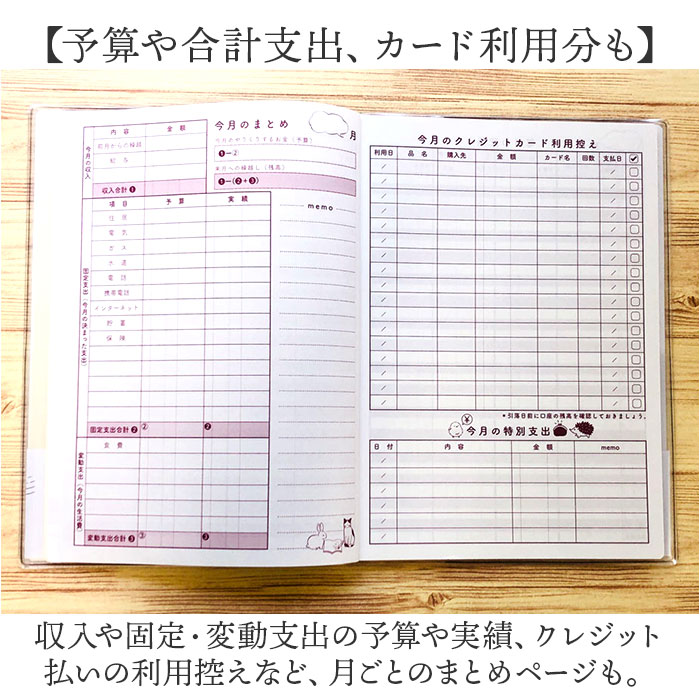 【予算や合計支出、カード利用分も】
今月の収入
内容 金額
前月からの繰越
給与
収入合計❶
今月のまとめ
月
今月のやりくりするお金(予算)
❶ー②
来月への繰越し(残高)
❶ー(❷+❸)
memo
固定支出(今月の決まった支出)
項目 予算 実績
住居
電気
ガス
水道
電話
携帯電話
インターネット
貯蓄
保険
固定支出合計❷ ② ❷
変動支出(今月の生活費)
食費
変動支出合計❸ ③ ❸
今月のクレジットカード利用控え
利用日 品名 購入先 金額 カード名 回数 支払日
*引落日前に口座の残高を確認しておきましょう。
¥
今月の特別支出
日付 内容 金額 memo
収入や固定・変動支出の予算や実績、クレジット
払いの利用控えなど、月ごとのまとめページも。